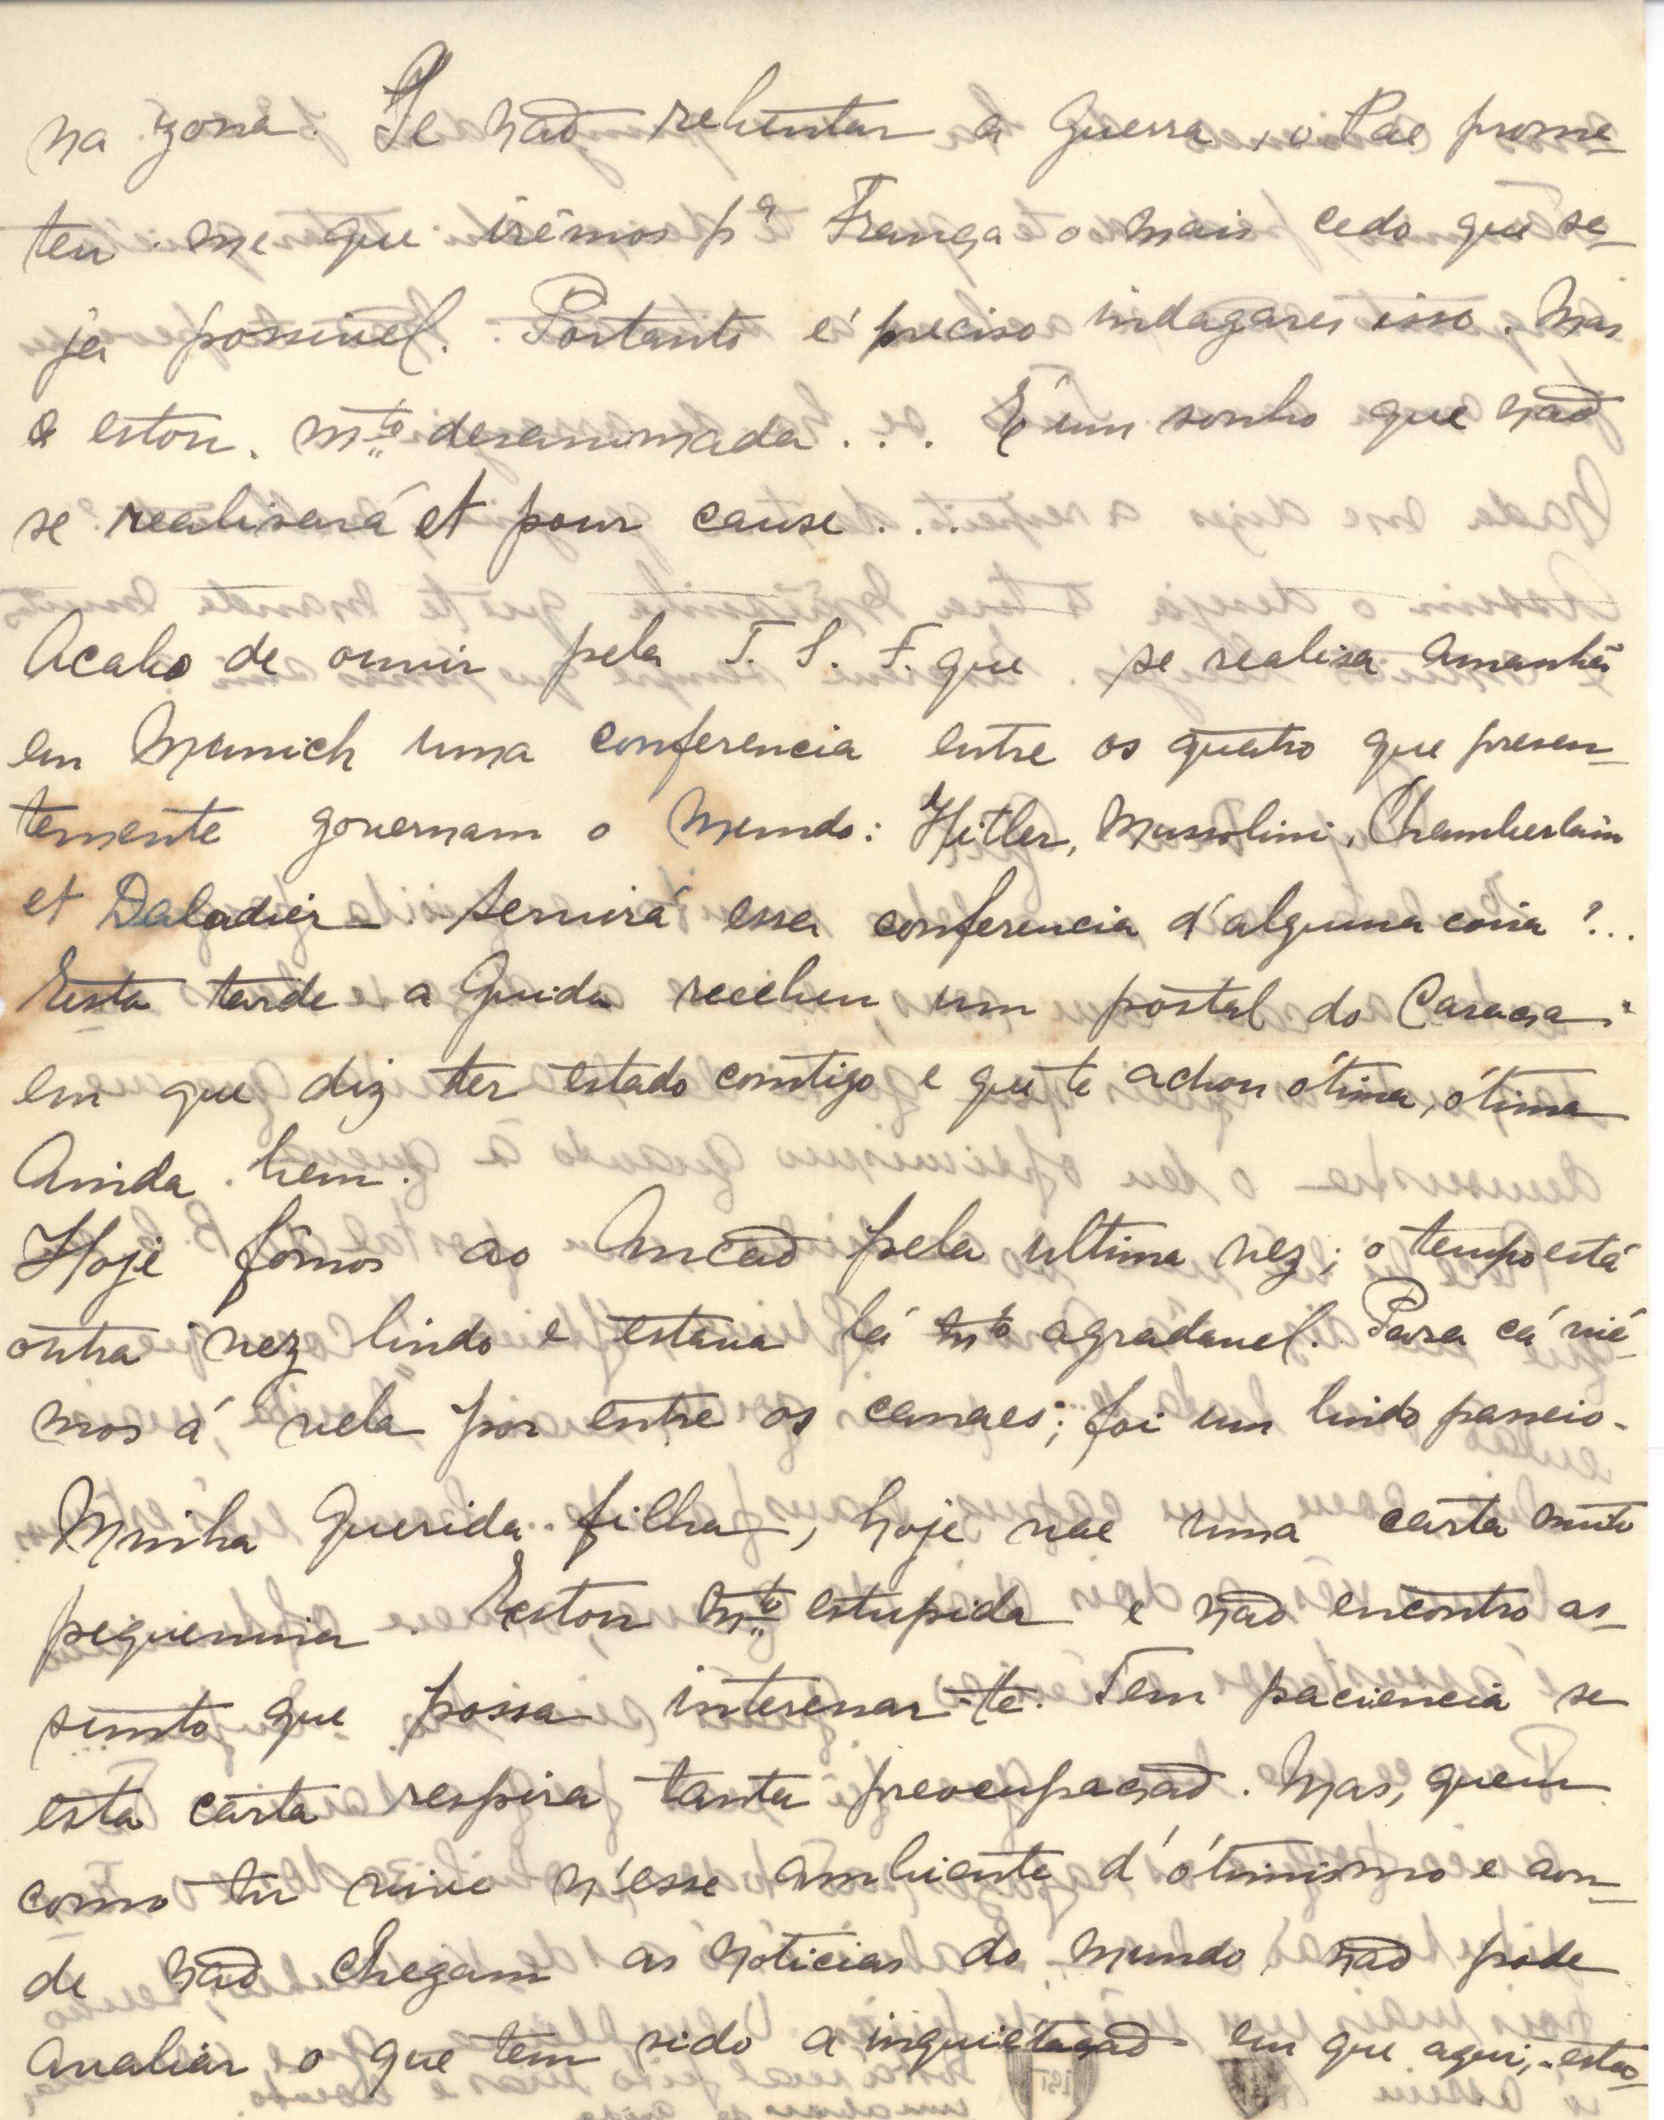 na zona. Se não rebentar a Guerra, o Pae prome-
teu-me que irêmos pª França o mais cedo que se-
ja possivel. Portanto é preciso indagares isso. Mas
estou mto desanimada... E' um sonho que não
se realisará et pour cause...
Acabo de ouvir pela T. S. F. que se realisa amanhã
em Munich uma conferencia entre os quatro que presen-
temente governam o Mundo: Hitler, Mussolini, Chamberlain
et Daladier - Servirá essa conferencia d'alguma coisa?...
Esta tarde a Guida recebeu um postal do
em que diz ter estado comtigo e que te achou ótima, ótima
Ainda bem.
Hoje fômos ao Ancão pela ultima vez; o tempo está
outra vez lindo e estava lá mto agradavel. Para cá vié-
mos á vela por entre os canaes; foi um lindo passeio.
Minha Querida filha, hoje vae uma carta muito
pequenina. Estou mto estupida e não encontro as-
sunto que possa interessar-te. Tem paciencia se
esta carta respira tanta preocupação. Mas, quem
como tu vive n'esse ambiente d'ótimismo e aon-
de não chegam as noticias do mundo, não pode
avaliar o que tem sido a inquietação em que aqui, esta-